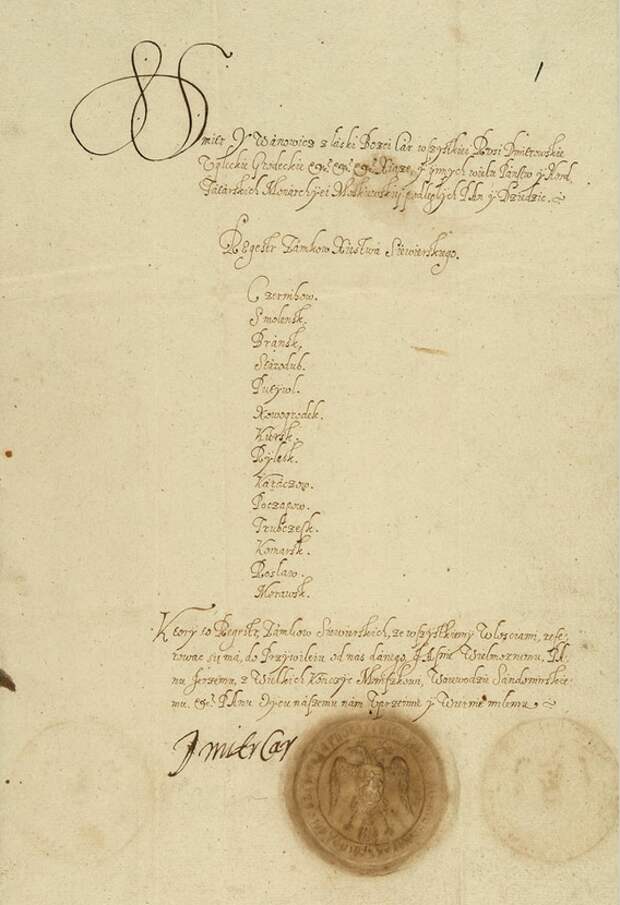 1
Dmitr Ywanowicz z łaski Bozei Car wszytkiei Rusi Dmitrowskie
Uglickie Grodeckie etc. etc. etc. Xiąże, y ynnych wielu Państw y Hord
Tatarskich Monarchyei Moskiewskiej podległych Pan y Dziedzic.
Regestr Zamkow Xiestwa Siewierskiego.
Czernihow.
Smolensk.
Bransk.
Starodub.
Putywl.
Nowogrodek.
Kursk.
Rylsk.
Karaczow.
Poczapow.
Trubczesk.
Komarsk.
Roslaw.
Morawsk.
Ktory to Regestr, Zamkow Siewierskich, ze wszytkiemi Włosciami, refe-
rowac się ma, do Przywileiu od nas danego, Wielmoznemu, Pa-
nu Jerzemu, z Wielkich Kończyc Mniszkowi, Woiewodzie Sandomirskie-
mu. etc. Panu Oycu naszemu nam Uprzeimie y Wiernie milemu.
Dmitr Car